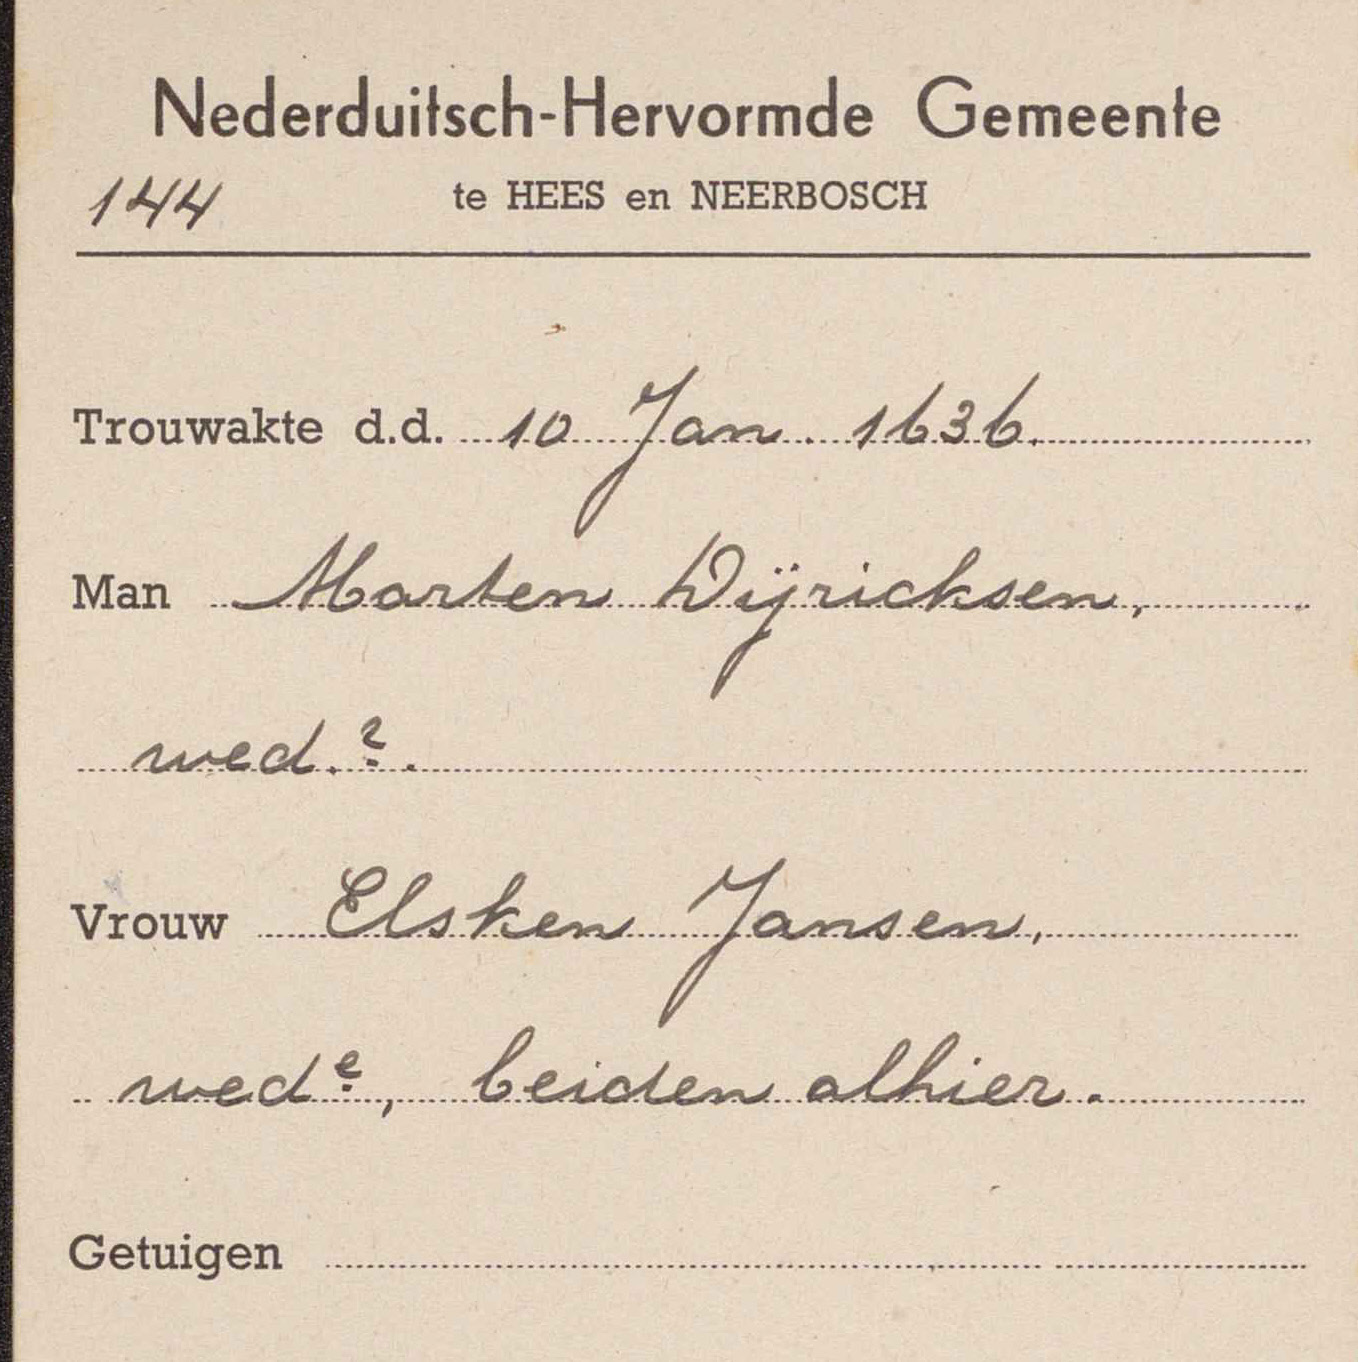 Nederduitsch-Hervormde Gemeente
144 te HEES en NEERBOSCH
Trouwakte d.d. 10 Jan. 1636.
Man Marten Dÿricksen,
wed.r.
Vrouw Elsken Jansen,
wede, beiden alhier.
Getuigen